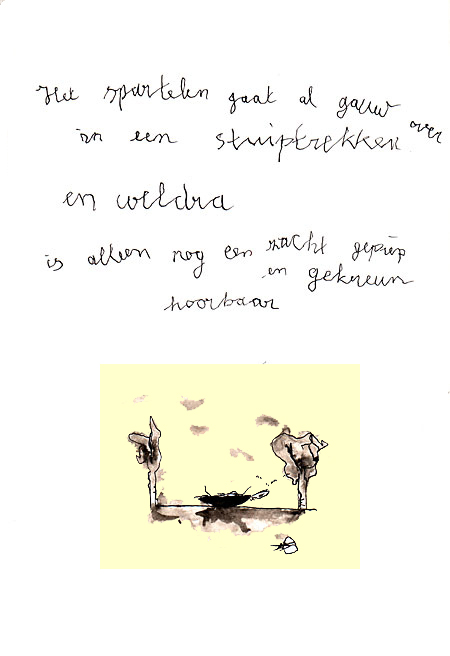 Het spartelen gaat al gauw over
in een stuiptrekken
en weldra
is alleen nog een zacht gepiep
en gekreun
hoorbaar